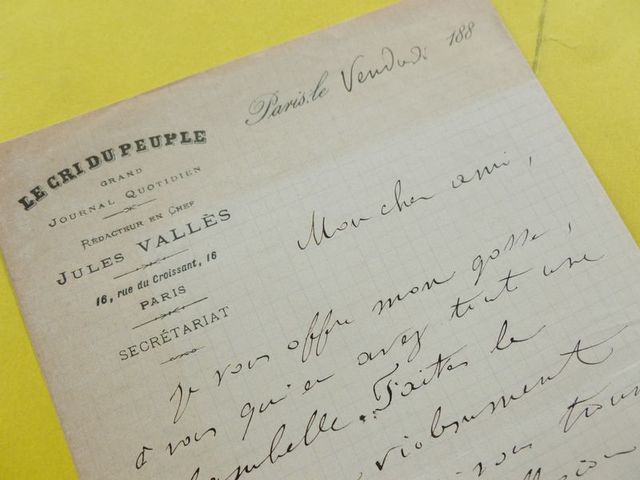 Paris, le Vendredi 188
LE CRI DU PEUPLE
GRAND
JOURNAL QUOTIDIEN
RÉDACTEUR EN CHEF
JULES VALLÈS
16, rue du Croissant, 16
PARIS
SECRÉTARIAT
Mon cher ami,
Je vous offre mon gosse,
à vous qui en avez tout une
Faites le
violemment
vous